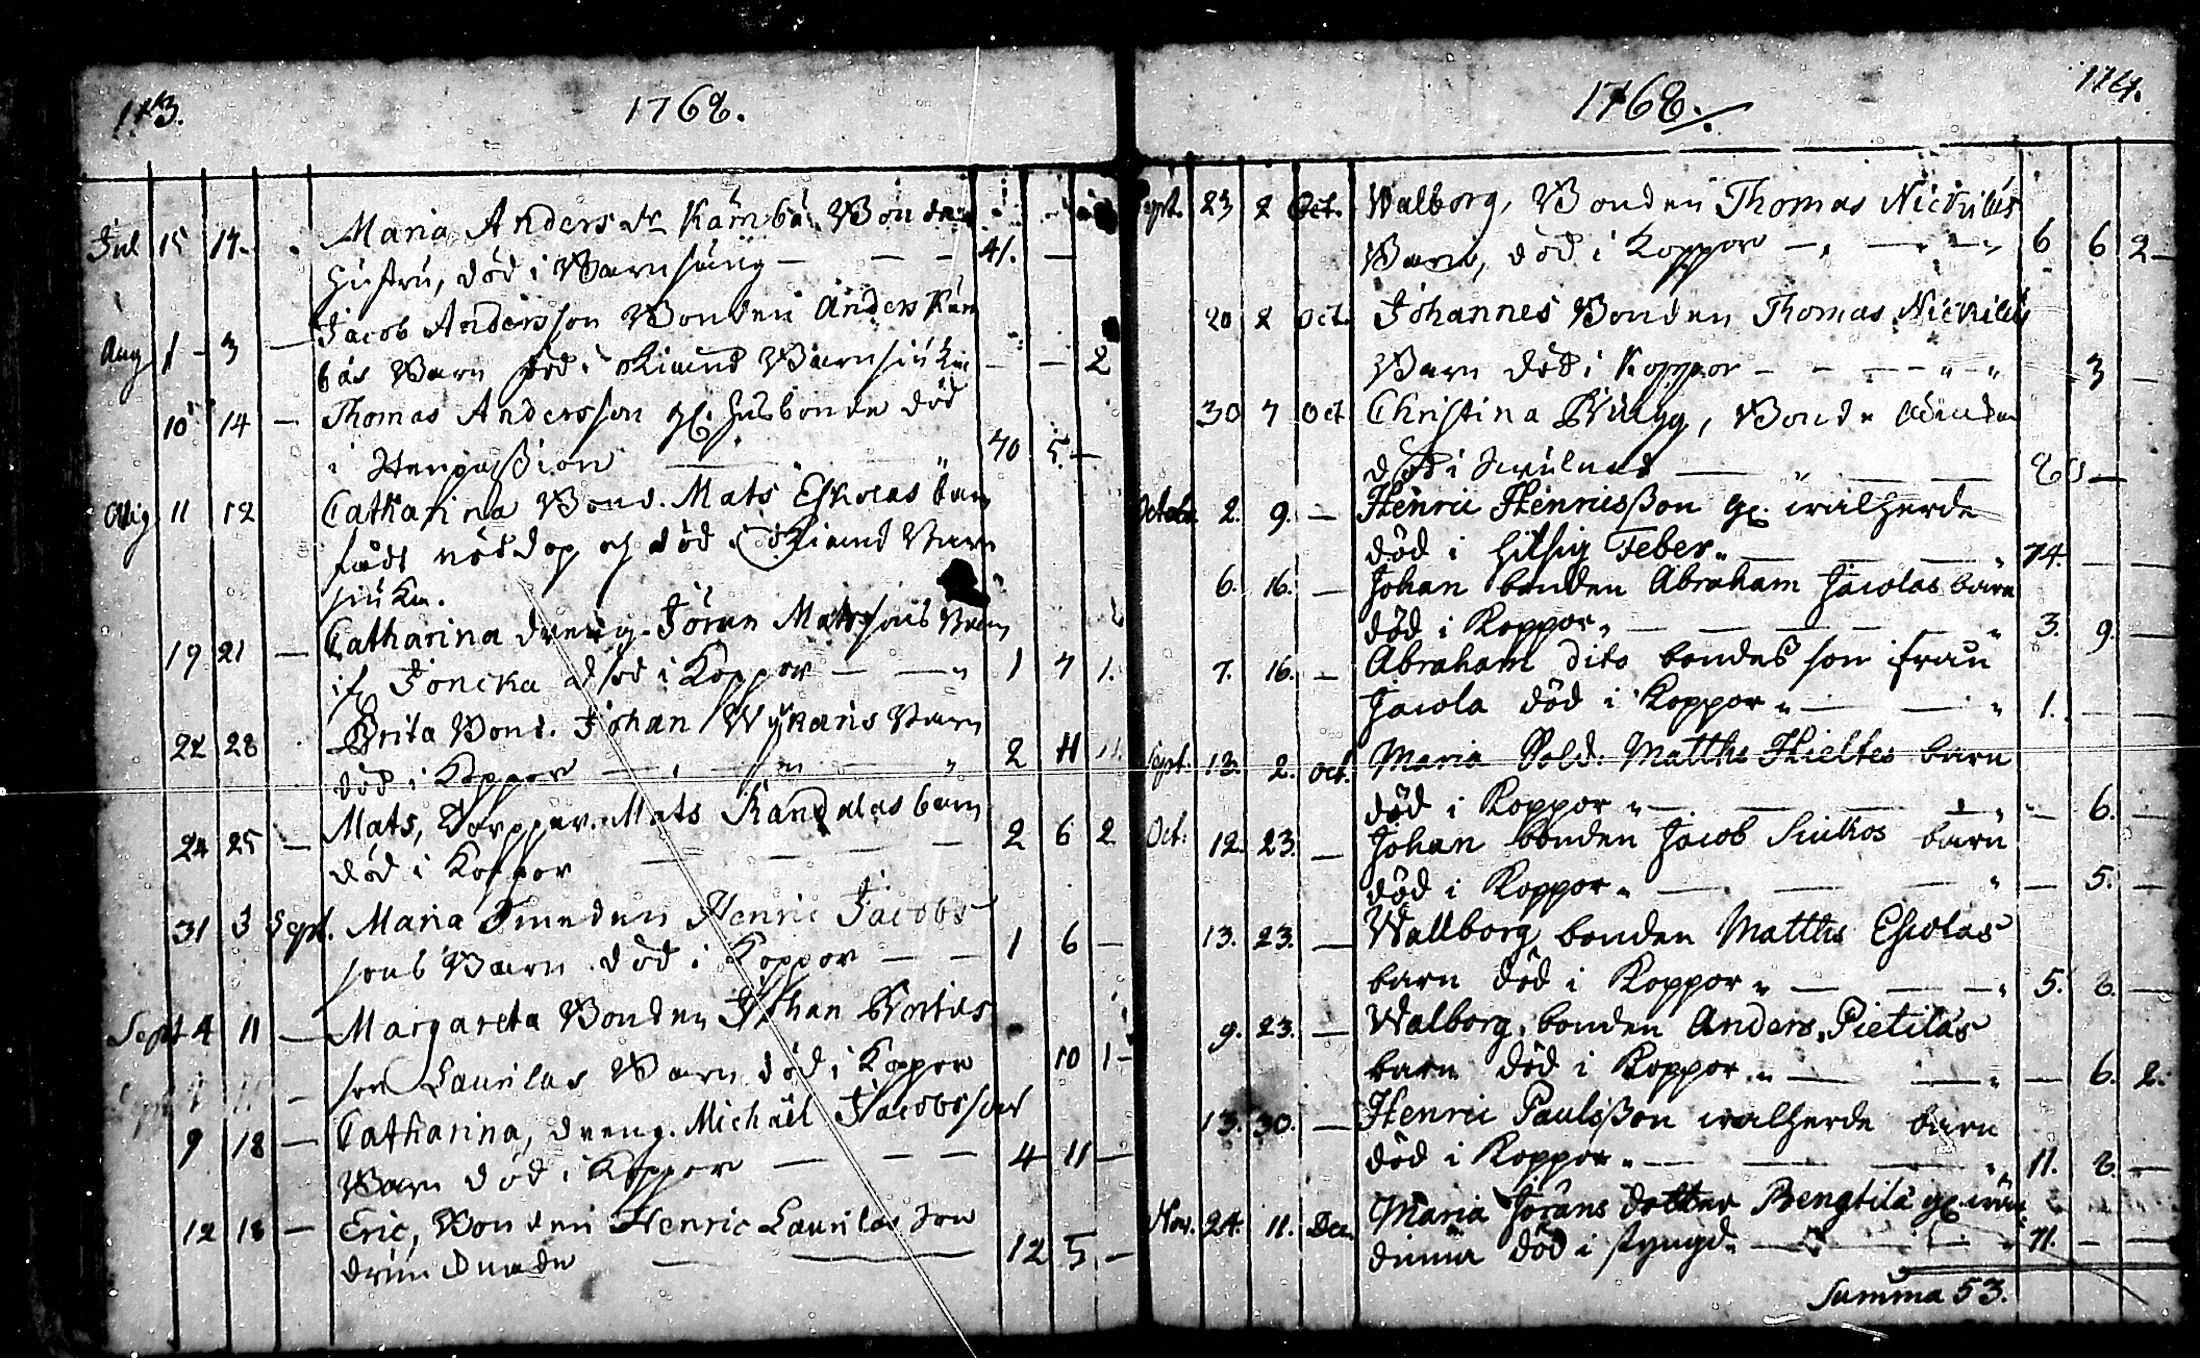 113.
1768.
Jul 15 17. Maria Andersdr Kambäs Bonden
hustru, död i Barnsäng — — — 41. —
Aug 1 - 3 — Jacob Andersson Bonden Anders Kam
bäs Barn död i okiänd Barnsiukn — — 2
10 14 — Thomas Andersson gl. husbonde död
i Stenpassion — 70 5. —
Aug 11 12 Catharina Bond. Mats Eskolas barn
fådt nöddop och död i okiänd Barn
siukn.
19 21 — Catharina dreng. Jöran Matssons Barn
Joncka död i Koppor — — 1 7 1.
22 28 Brita Bond. Johan Wykans Barn
död i Koppor — 2 11 11.
24 25 — Mats, Torppar. Mats Randalas barn
död i Koppor — — — — 2 6 2
31 3 Sept. Maria Smeden Henric Jacobs
sons Barn död i Koppor — — 1 6 —
Sept 4 11 — Margareta Bonden Johan
son Laurilas Barn död i Koppor 10 1 —
9 18 — Catharina, dreng. Michäel Jacobsson
Barn död i Koppor — — — 4 11 —
12 18 — Eric, Bonden Henric Laurilas son
drunknade — 12 5. —
114.
1768.
Sept. 23 2 Oct. Walborg, Bonden Thomas Nickiläs
Barn, död i Koppor — 6 6 2 —
20 2 Oct. Johannes Bonden Thomas Nickiläs
Barn död i Koppor — 3 —
30 7 Oct Christina Brygg, Bonde
död i
October 2. 9. — Henric Henricsson gl. walherde
död i hitsig Feber — 74. — —
6. 16. — Johan bonden Abraham Jacolas barn
död i Koppor — 3. 9. —
7. 16. — Abraham dito bondes son från
Jacola död i Koppor — 1. — —
Sept. 13. 2. Oct. Maria Sold. Matths Hieltes barn
död i Koppor — 6. —
Oct. 12. 23. — Johan bonden Jacob barn
död i Koppor — 5. —
13. 23. — Wallborg bonden Matths Escolas
barn död i Koppor — 5. 8. —
9. 23. — Walborg bonden Anders Pietiläs
barn död i Koppor — 6. 2.
13. 30. — Henric Paulsson walherde barn
död i Koppor — 11. 8. —
Nov. 24. 11. Dec. Maria Jörans dotter Bengtilä gl. wär
dinna död i styngd — 71. — —
Summa 53.